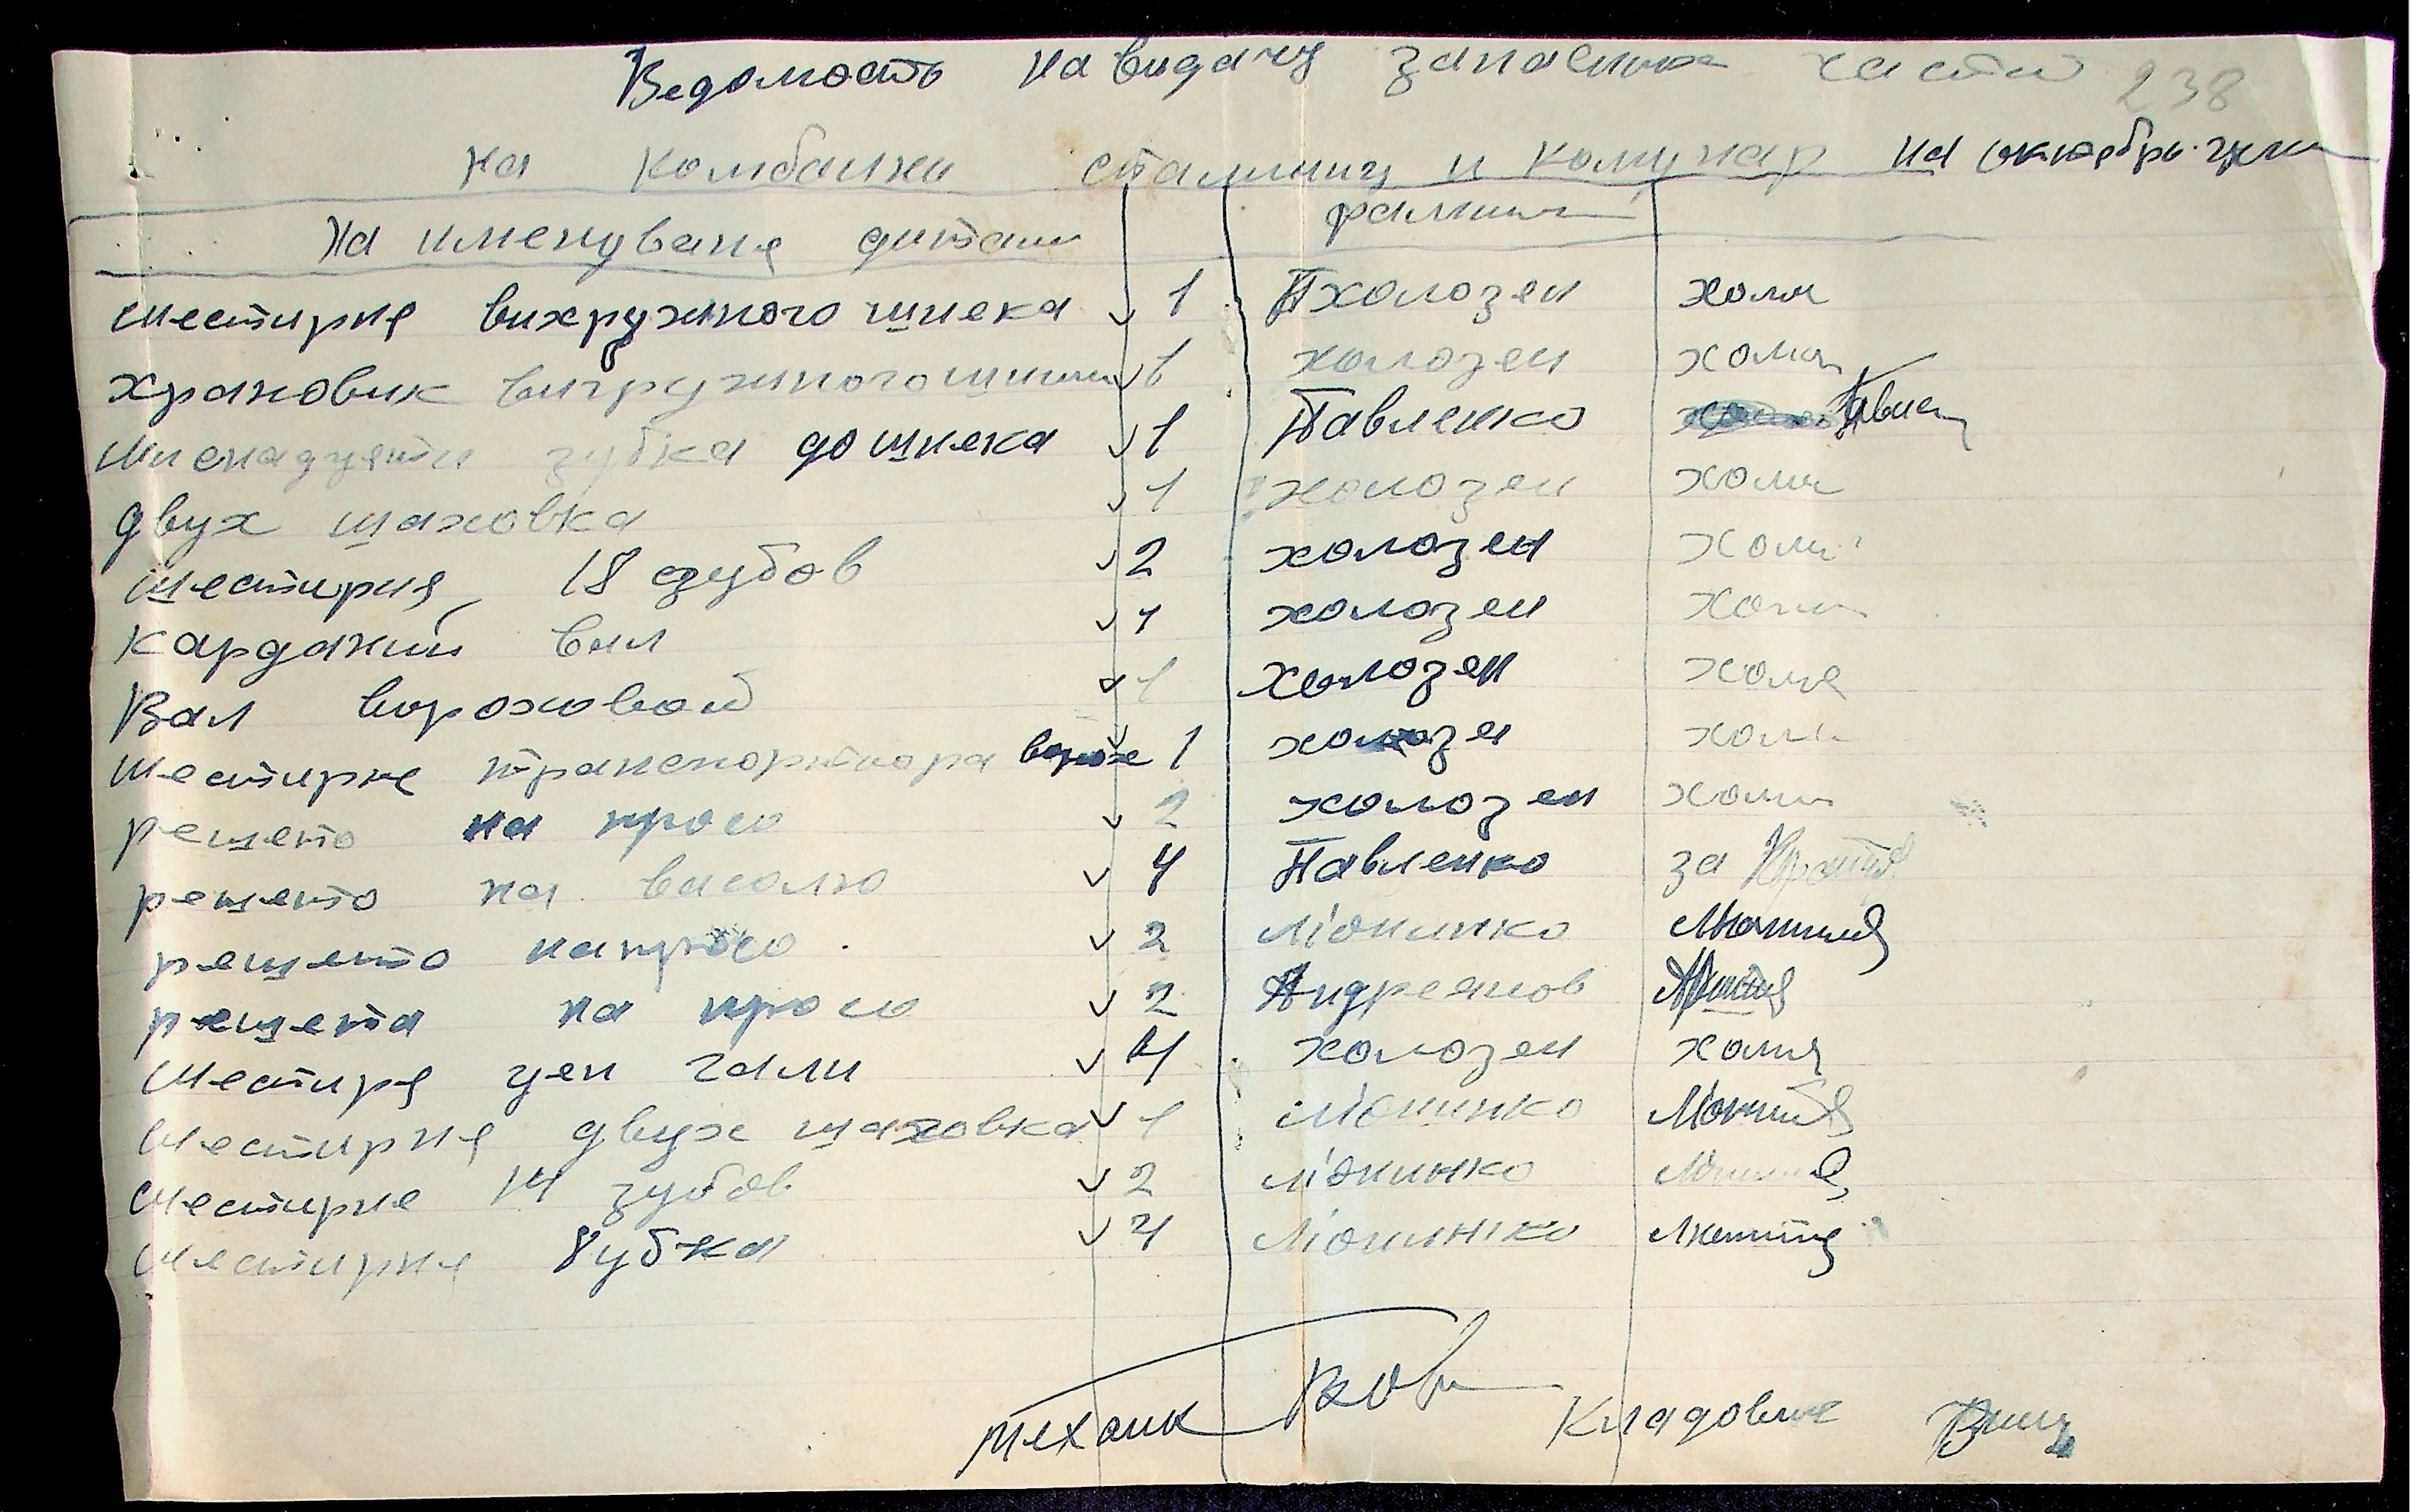 Ведомость на видачу запасних части 238
на комбаини сталиниц и комунар на октябрь
На именуваня дитали фамилия
шестирня вихружного шнека 1 Пхолозен холи
храповик вигружного шнека 1 холозен холи
зубка до шнека 1 Павленко
двух шаховка 1 холозен холи
шестирня 18 зубов 2 холозен холи
Карданий вал 1 холозен холи
Вал вороховой 1 холозен холи
шестирне транспортиора ворохе 1 холозен холи
решето на просо 2 холозен холи
решето на васолю 4 Павленко за
решето на просо 2 Мюнинко
решета на просо 2 Андреянов
Шестиря цеп гали 4 холозен холи
Шестирня двух шаховка 1 Мюнинко
Шестирне 14 зубов 2 Мюнинко
Шестирня 8убка 4 Мюнинко
механик Кладовник